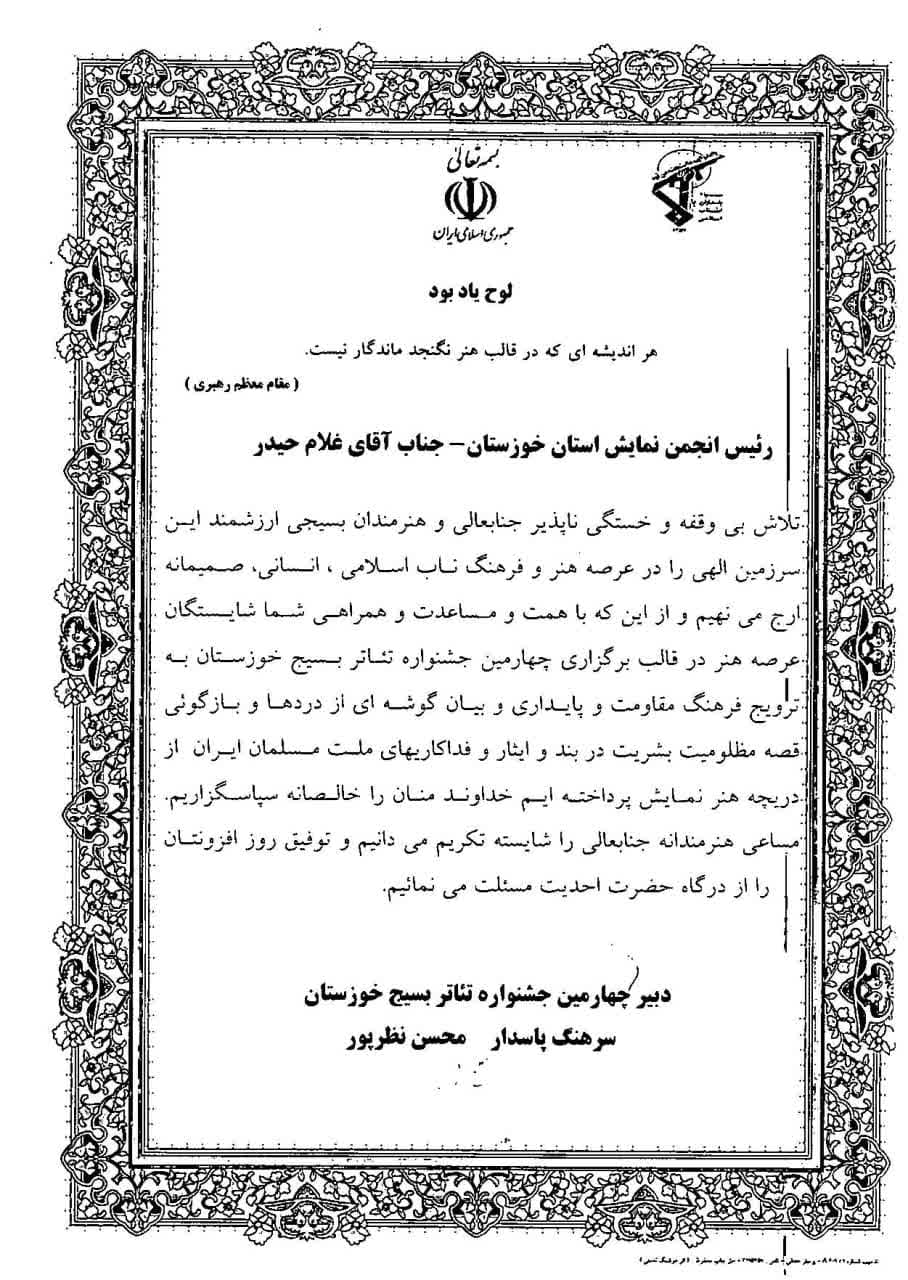 بسمه تعالی
جمهوری اسلامی ایران
لوح یاد بود
هر اندیشه ای که در قالب هنر نگنجد ماندگار نیست.
( مقام معظم رهبری )
رئیس انجمن نمایش استان خوزستان – جناب آقای غلام حیدر
تلاش بی وقفه و خستگی ناپذیر جنابعالی و هنرمندان بسیجی ارزشمند این
سرزمین الهی را در عرصه هنر و فرهنگ ناب اسلامی ، انسانی، صمیمانه
ارج می نهیم و از این که با همت و مساعدت و همراهی شما شایستگان
عرصه هنر در قالب برگزاری چهارمین جشنواره تئاتر بسیج خوزستان به
ترویج فرهنگ مقاومت و پایداری و بیان گوشه ای از دردها و بازگوئی
قصه مظلومیت بشریت در بند و ایثار و فداکاریهای ملت مسلمان ایران از
دریچه هنر نمایش پرداخته ایم خداوند منان را خالصانه سپاسگزاریم.
مساعی هنرمندانه جنابعالی را شایسته تکریم می دانیم و توفیق روز افزونتان
را از درگاه حضرت احدیت مسئلت می نمائیم.
دبیر چهارمین جشنواره تئاتر بسیج خوزستان
سرهنگ پاسدار محسن نظرپور